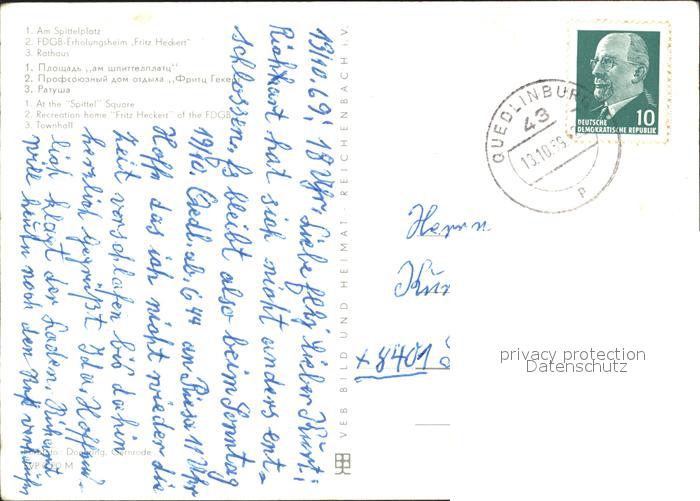 1. Am Spittelplatz
2. FDGB-Erholungsheim „Fritz Heckert“
3. Rathaus
1. Площадь „ам шпиттелплатц“
2. Профсоюзный дом отдыха „Фритц Гекерт
3. Ратуша
1. At the "Spittel" Square
2. Recreation home "Fritz Heckert" of the FDGB
3. Townhall
VEB BILD UND HEIMAT REICHENBACH I. V.
13/10. 69, 18 Uhr. Liebe Elly, lieber Kurt;
Richhart hat sich nicht anders ent-
schlossen. Es bleibt also beim Sonntag
19/10. Quedl. ab. 6 44 an Riesa 11 Uhr
Hoffe das ich nicht wieder die
Zeit verschlafen bis dahin
herzlich gegrüßt Ida. Hoffent-
lich klagt der Laden, Richart
will heute noch den
QUEDLINBURG
43
13.10.69
P
10
DEUTSCHE
DEMOKRATISCHE REPUBLIK
Herrn
x 8401
privacy protection
Datenschutz